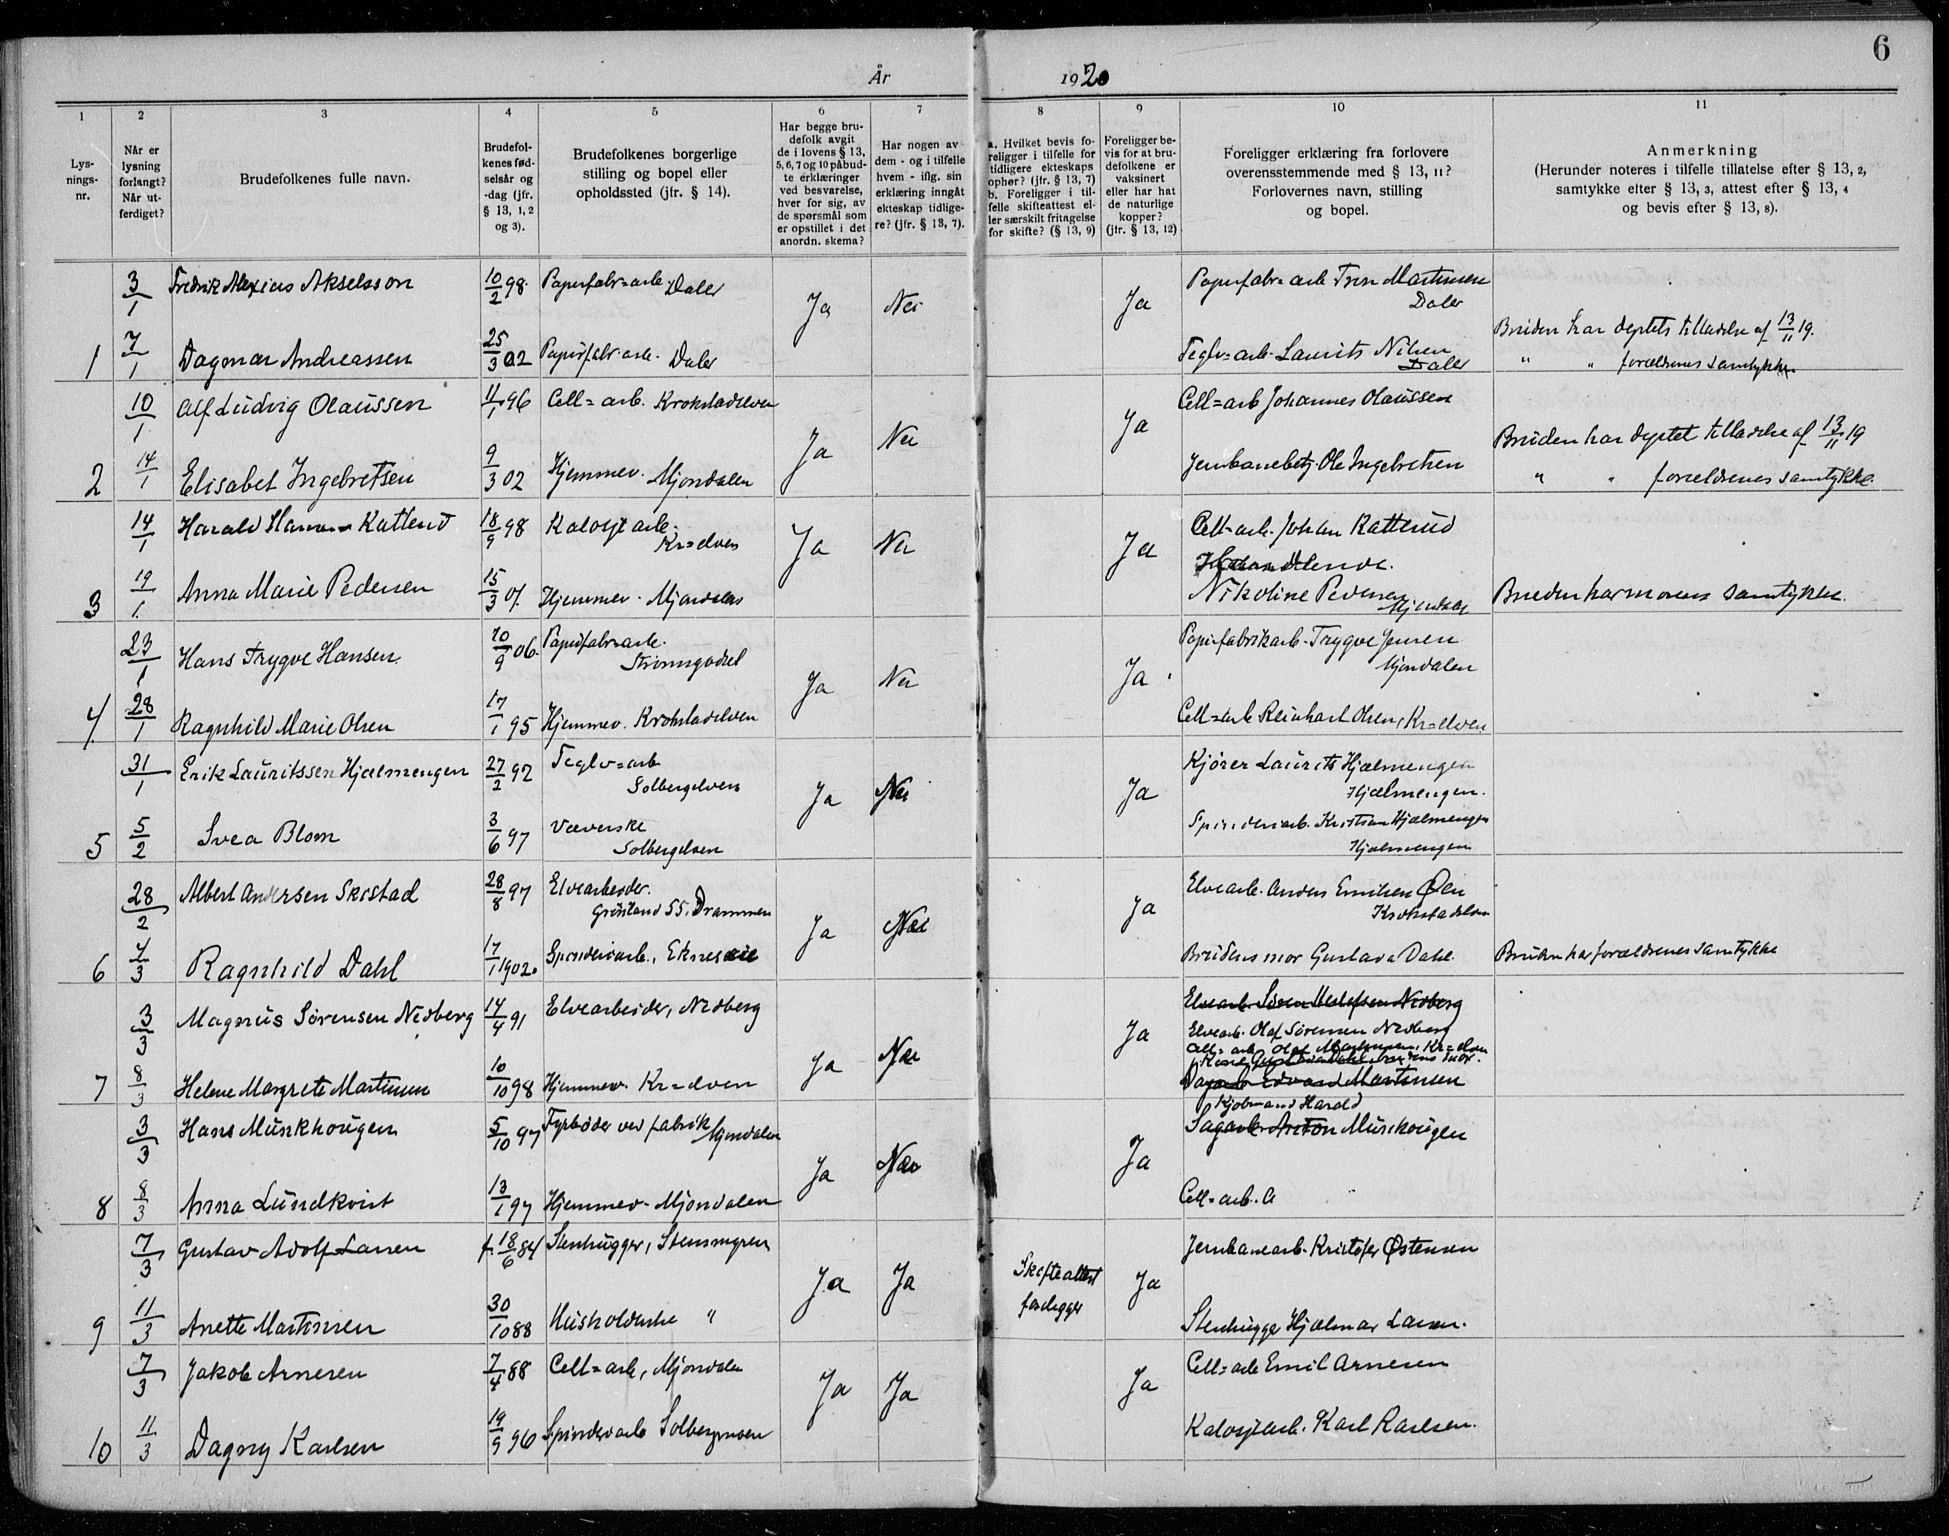 6
År 1920
1
2
3
4
5
6
7
8
9
10
11
Lys-
nings-
nr.
Når er
lysning
forlangt?
Når ut-
ferdiget?
Brudefolkenes fulle navn.
Brudefol-
kenes fød-
selsår og
-dag (jfr.
§ 13, 1, 2
og 3).
Brudefolkenes borgerlige
stilling og bopel eller
opholdssted (jfr. § 14).
Har begge bru-
defolk avgit
de i lovens § 13,
5, 6, 7 og 10 påbud-
te erklæringer
ved besvarelse,
hver for sig, av
de spørsmål som
er opstillet i det
anordn. skema?
Har nogen av
dem - og i tilfelle
hvem - iflg. sin
erklæring inngått
ekteskap tidlige-
re? (jfr. § 13, 7).
a. Hvilket bevis fo-
religger i tilfelle for
tidligere ekteskaps
ophør? (jfr. § 13, 7)
b. Foreligger i til-
felle skifteattest el-
ler særskilt fritagelse
for skifte? (§ 13, 9)
Foreligger be-
vis for at bru-
defolkene er
vaksinert
eller har hat
de naturlige
kopper?
(jfr. § 13, 12)
Foreligger erklæring fra forlovere
overensstemmende med § 13, 11?
Forlovernes navn, stilling
og bopel.
Anmerkning
(Herunder noteres i tilfelle tillatelse efter § 13, 2,
samtykke efter § 13, 3, attest efter § 13, 4
og bevis efter § 13, 8).
3/1 Fredrik Alexius Akselsson 10/2 98. Papirfabr=arb. Daler Ja Nei Ja Papirfabr=arb Martinsen
Daler
Bruden har deptets tilladelse af 13/11 19.
1 7/1 Dagmar Andreassen 25/3 02 Papirfabr arb. Daler Teglv=arb. Laurits Nilsen
Daler
" " forældrenes samtykke
10/1 Alf Ludvig Olaussen 11/1 96 Cell=arb. Krokstadelven Ja Nei Ja Cell=arb Johannes Olaussen
Bruden har deptet tilladelse af 13/11 19
2 14/1 Elisabet Ingebretsen 9/3 02 Hjemmev. Mjøndalen Jernbanebetj. Ole Ingebretsen
" " forældrenes samtykke.
14/1 Harald Katterud 18/9 98 Kalosje arb.
Kr=elven Ja Nei Ja Cell=arb. Johan Katterud
3 19/1. Anna Marie Pedersen 15/3 01. Hjemmev. Mjøndalen Nikoline Pedersen
Mjøndalen
Bruden har morens samtykke.
23/1 Hans Trygve Hansen. 10/9 06. Papirfabr=arb.
Strømsgodset Ja Nei Ja. Papirfabrikarb. Trygve Jensen
Mjøndalen
4. 28/1 Ragnhild Marie Olsen 17/1 95 Hjemmev. Krokstadelven Cell=arb Reinhart Olsen, Kr=elven
31/1 Erik Lauritssen Hjælmengen 27/2 92 Teglv=arb
Solbergelven Ja Nei Ja Kjører Laurits Hjælmengen
Hjælmengen.
5 5/2 Svea Blom 3/6 97 Væverske
Solbergelven Spinderiarb. Kristian Hjælmengen
Hjælmengen
28/2 Albert Andersen Skistad 28/8 97 Elvearbeider.
Grønland 55. Drammen Ja Nei Ja Elvearb. Anders Emilsen Øen
Krokstadelven
6 4/3 Ragnhild Dahl 17/1 1902. Spinderiarb., Eknes Brudens mor Gustava Dahl.
Bruden har forældrenes samtykke
3/3 Magnus Sørensen Nedberg 14/4 91 Elvearbeider, Nedberg Ja Nei Ja Elvearb. Søren Nedberg
Elvearb. Olaf Sørensen Nedberg
Cell=arb Olaf Martinsen, Kr=elven
7 8/3 Helene Margrete Martinsen 10/10 98 Hjemmev. Kr=elven Edvard Martinsen
3/3 Hans Munkhougen 5/10 97 Fyrbøder ved fabrik Mjøndalen Ja Nei Ja Kjøbmand Harald
Sagarb. Anton Munkhougen
8 8/3 Anna Lundkvist 13/1 97 Hjemmev. Mjøndalen Cell=arb. A
7/3 Gustav Adolf Larsen f. 18/6 84 Stenhugger, Stensmyren Ja Ja Skifteattest
foreligger Ja Jernbanearb. Kristofer Østensen
9 11/3 Anette Martinsen 30/10 88 Husholderske " Stenhugger Hjalmar Larsen.
7/3 Jakob Arnesen 7/4 88 Cell=arb, Mjøndalen Ja Ja Ja Cell=arb Emil Arnesen
10 11/3 Dagny Karlsen 19/9 96 Spinderiarb Solbergmoen Kalosjearb. Karl Karlsen.